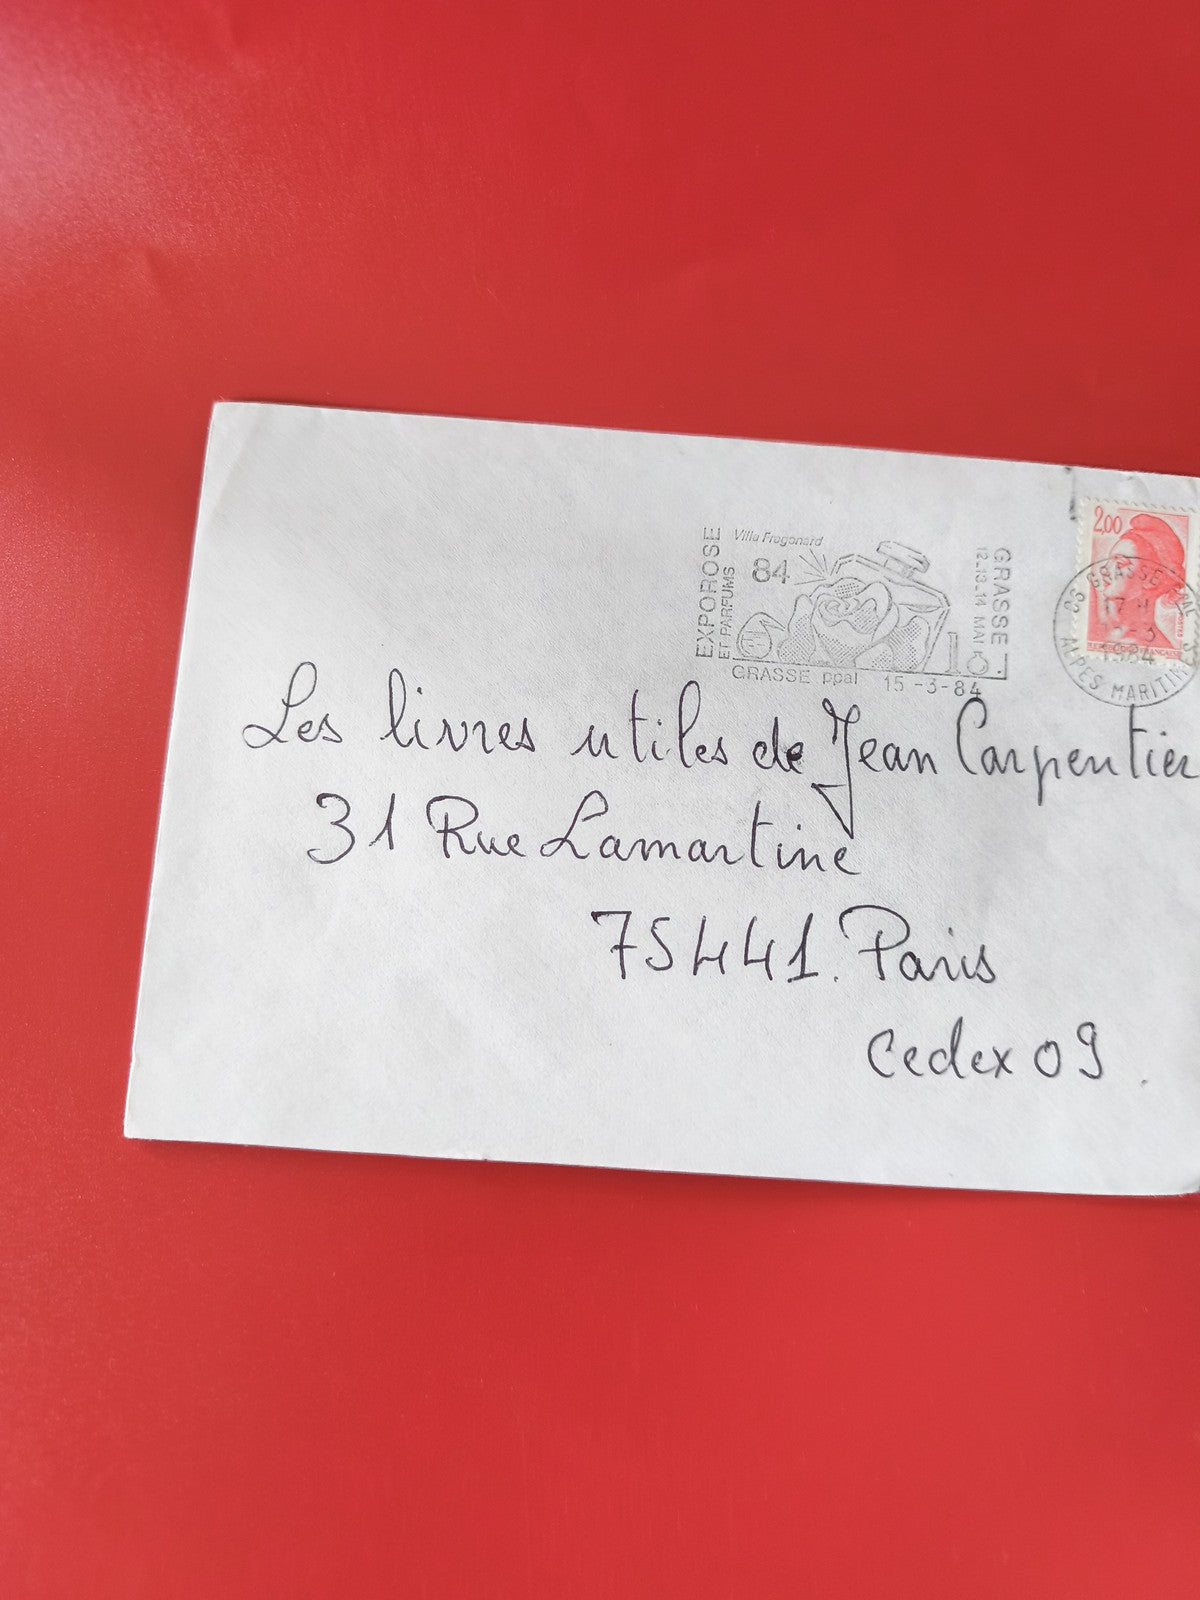 Villa Fragonard
EXPOROSE
ET PARFUMS
84
GRASSE
12_13_14 MAI
GRASSE ppal 15 -3-84
2,00
06 GRASSE PPAL
17 H
15-3
1984
ALPES MARITIMES
Les livres utiles de Jean Carpentier
31 Rue Lamartine
75441. Paris
Cedex 09.